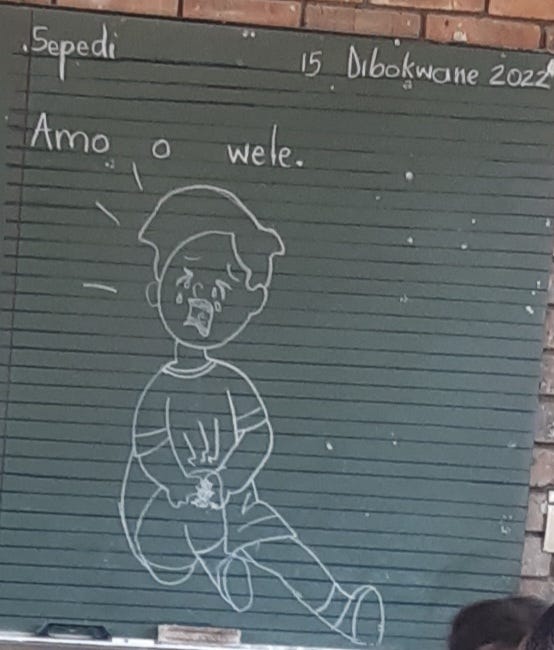 Sepedi
15 Dibokwane 2022
Amo o wele.